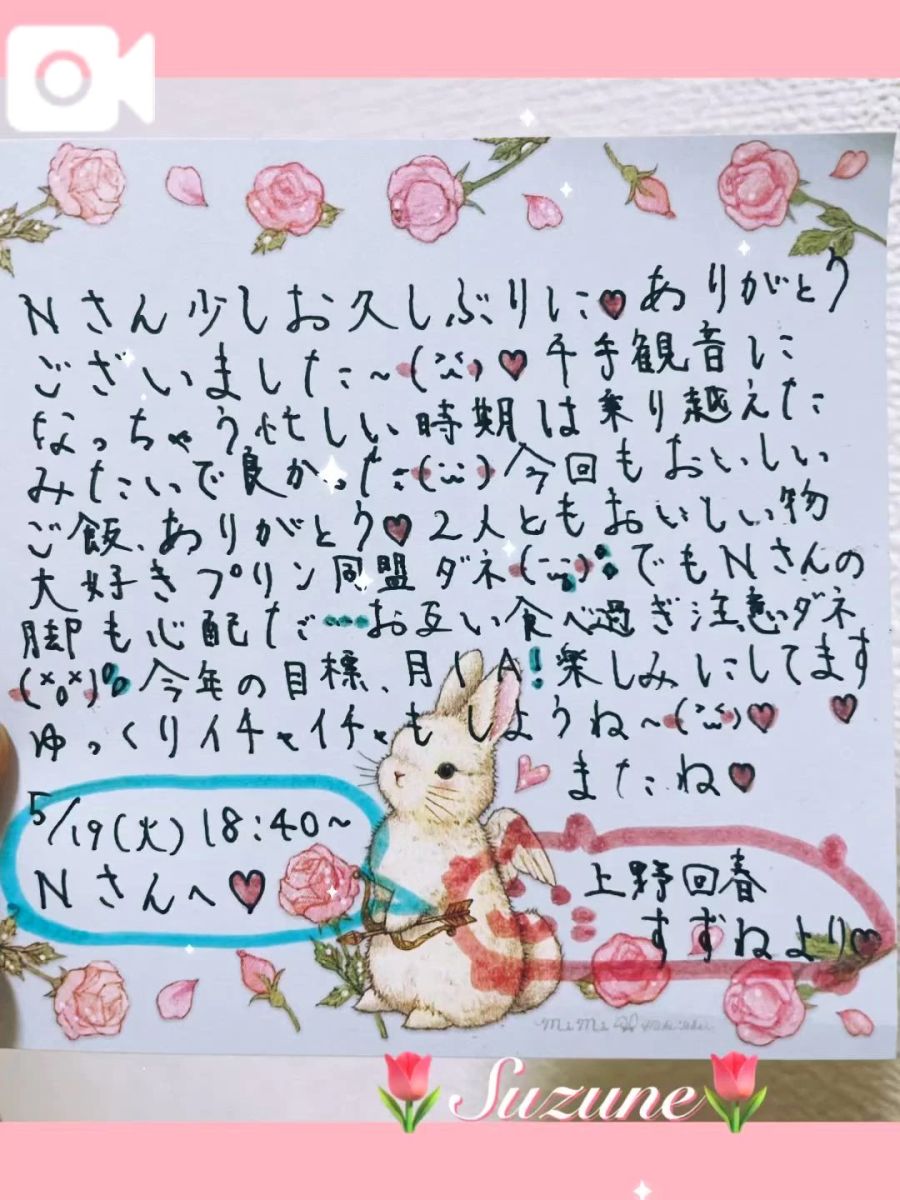 Nさん少しお久しぶりに♥ありがとう
ございました~(ᵔᵕᵔ)♥千手観音に
なっちゃう忙しい時期は乗り越えた
みたいで良かった(ᵕᵕ)今回もおいしい
ご飯、ありがとう♥2人ともおいしい物
大好きプリン同盟ダネ(-᎑-)でもNさんの
脚も心配だ…お互い食べ過ぎ注意ダネ
(×o×)今年の目標、月1A!楽しみにしてます
ゆっくりイチャイチャもしようね~(ᵔᵕᵔ)♥ ♥
またね♥
5/19(火)18:40~
Nさんへ♥
上野回春
すずねより♥
Suzune